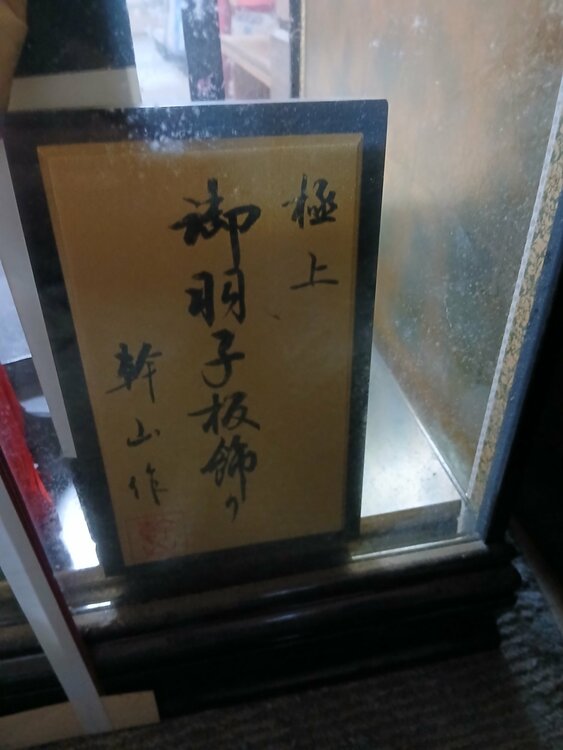 極上
御羽子板飾り
幹山作